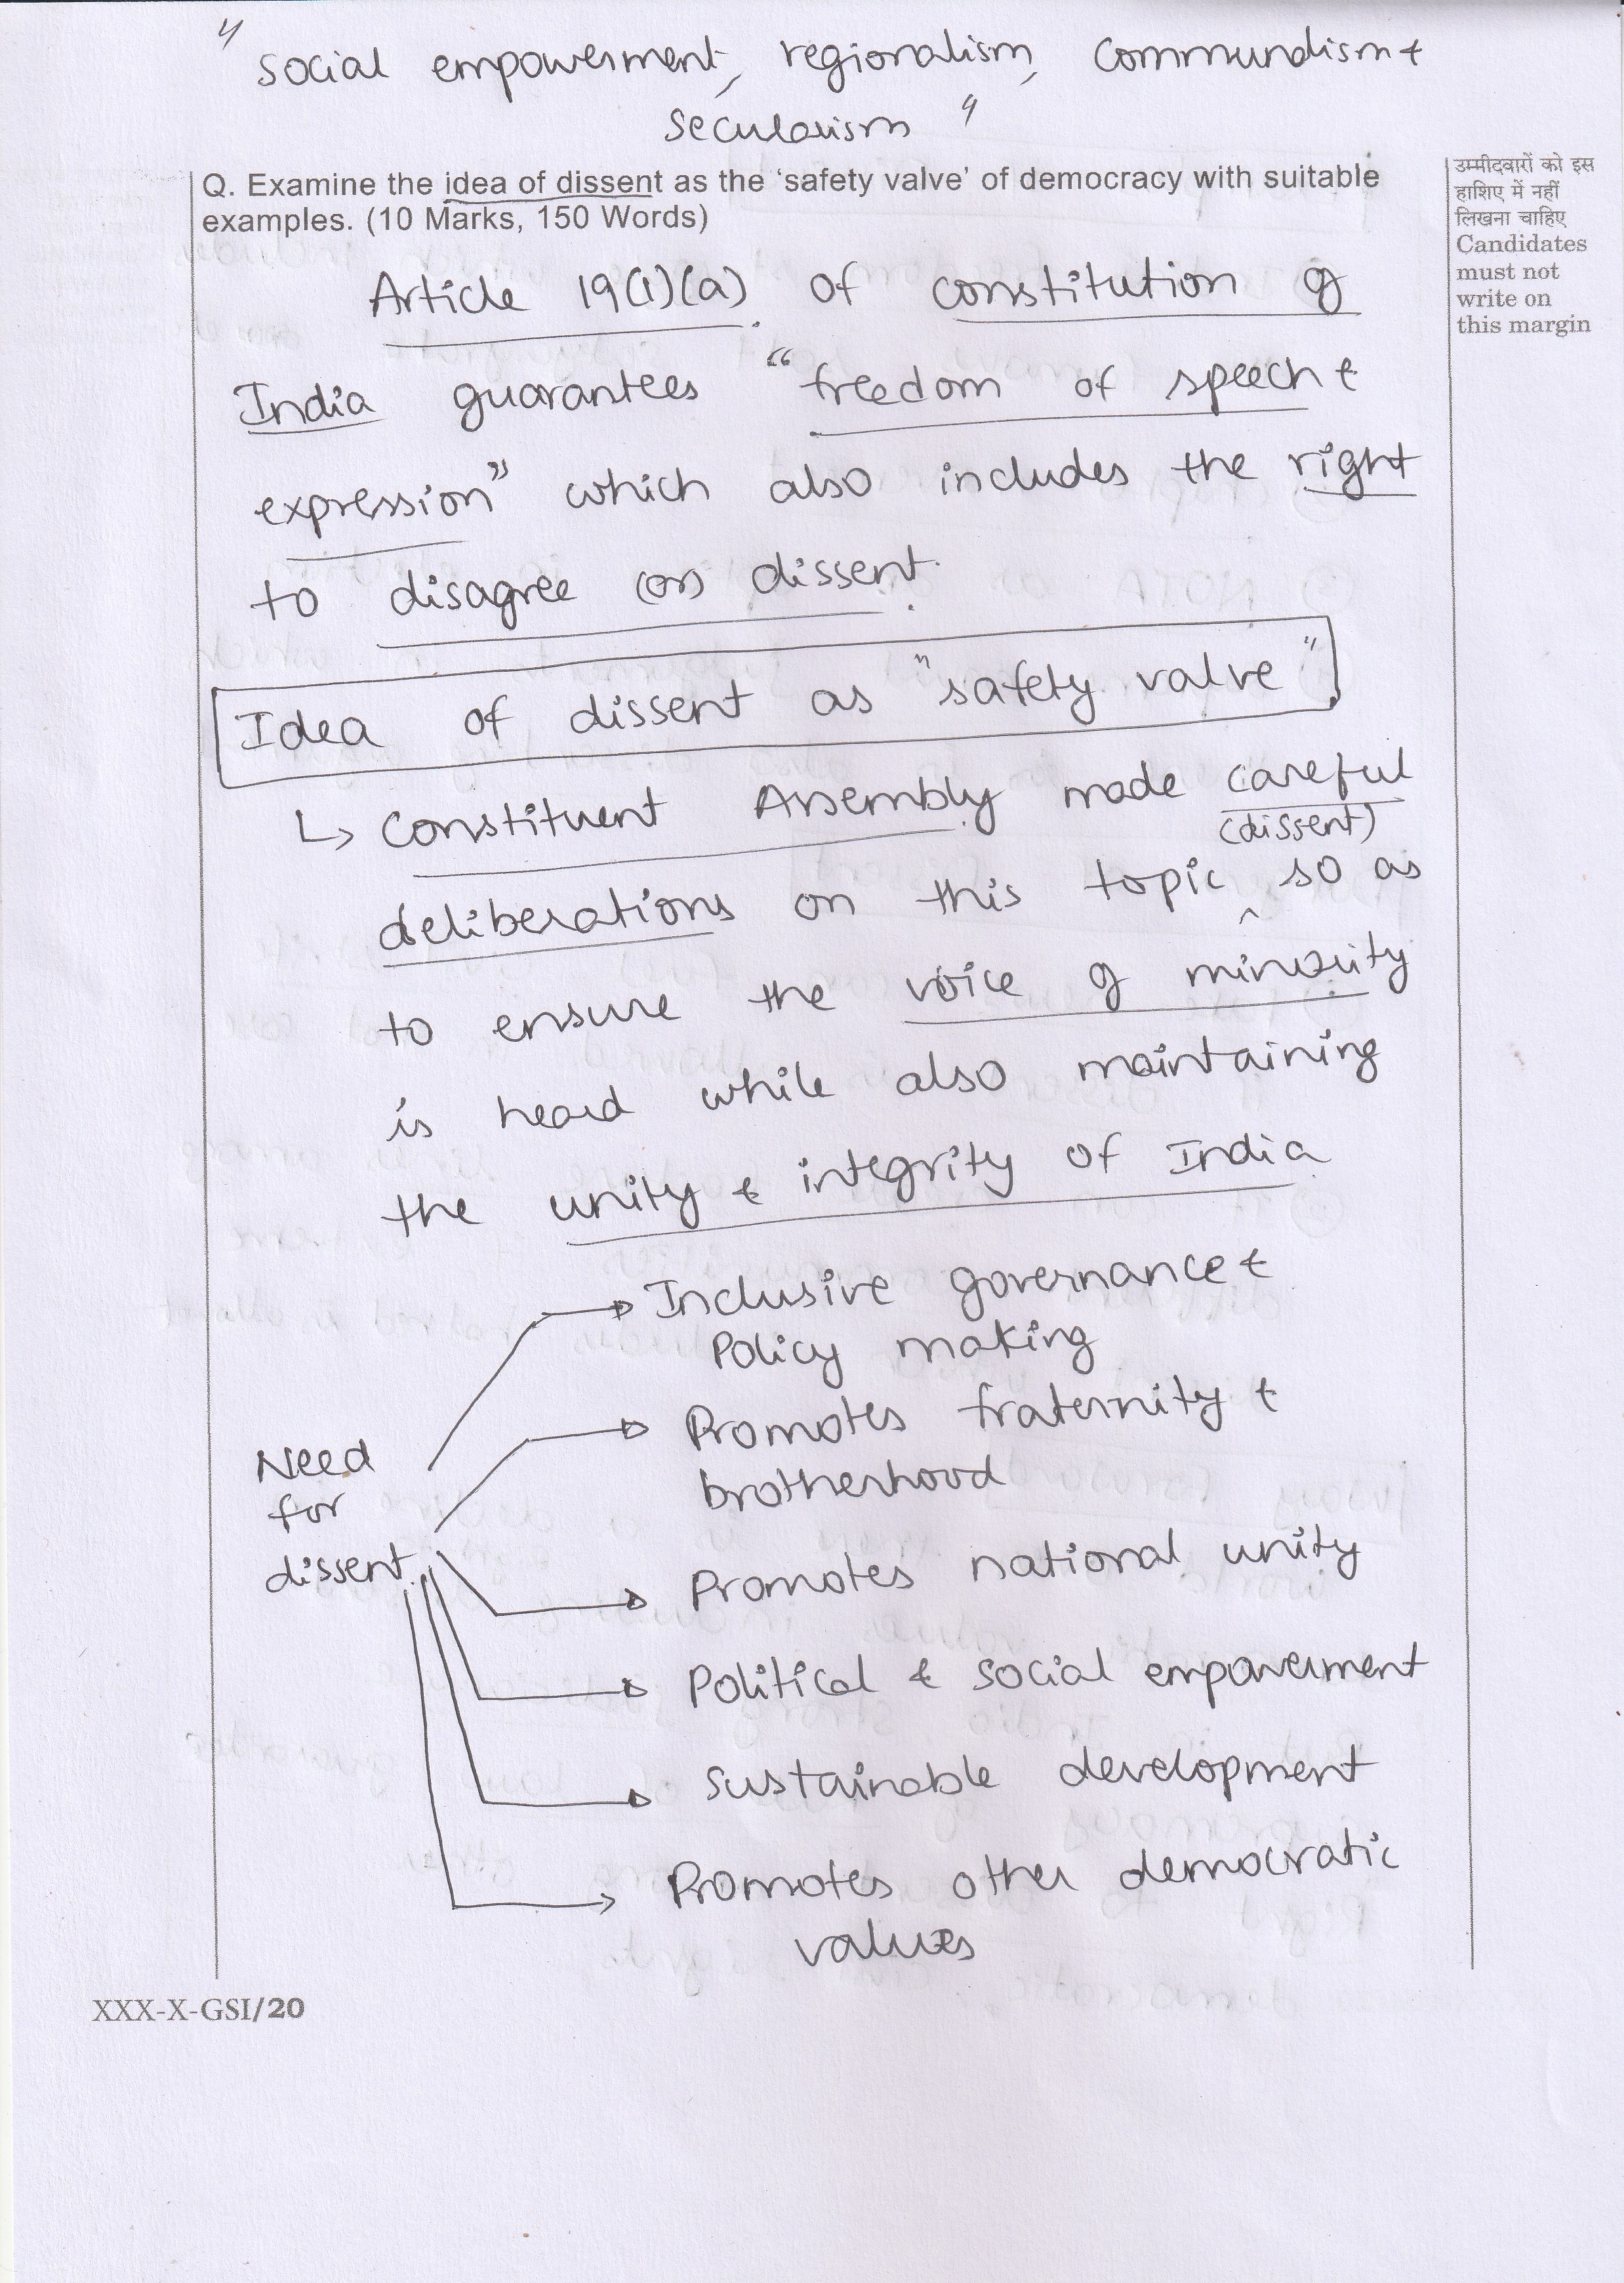 " social empowerment, regionalism, communalism &
secularism "
Q. Examine the idea of dissent as the 'safety valve' of democracy with suitable
examples. (10 Marks, 150 Words)
उम्मीदवारों को इस
हाशिए में नहीं
लिखना चाहिए
Candidates
must not
write on
this margin
Article 19(1)(a) of constitution of
India guarantees "freedom of speech &
expression" which also includes the right
to disagree (or) dissent.
Idea of dissent as "safety valve"
↳ Constituent Assembly made careful
(dissent)
deliberations on this topic ^ so as
to ensure the voice of minority
is heard while also maintaining
the unity & integrity of India
Need
for
dissent
→ Inclusive governance &
Policy making
→ Promotes fraternity &
brotherhood
→ Promotes national unity
→ Political & social empowerment
→ Sustainable development
→ Promotes other democratic
values
XXX-X-GSI/20